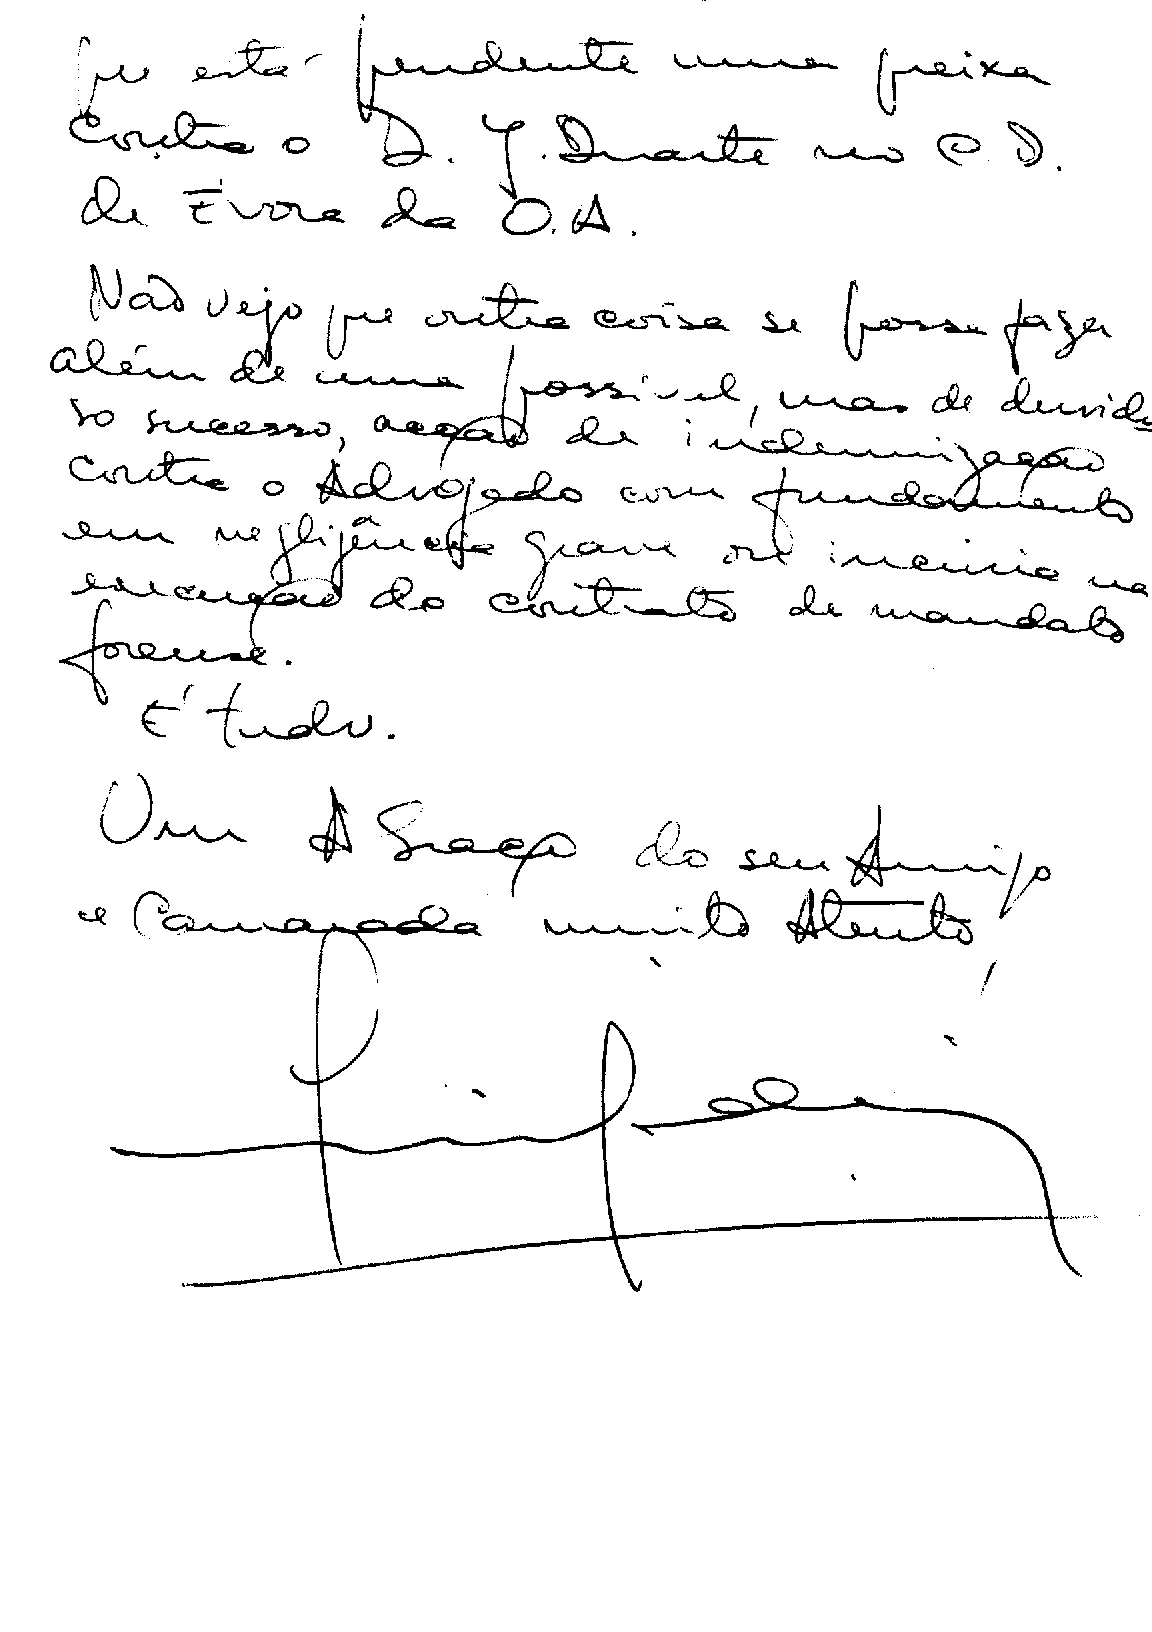 que está pendente uma queixa
contra o D. J. Duarte no C. D.
de Évora da O.A.
Não vejo que outra coisa se possa fazer
além de uma possível, mas de duvido
so sucesso, acção de indemnização
contra o Advogado com fundamento
em negligência grave ou incúria na
execução do contrato de mandato
forense.
É tudo.
Um Abraço do seu Amigo
e Camarada muito Atento,